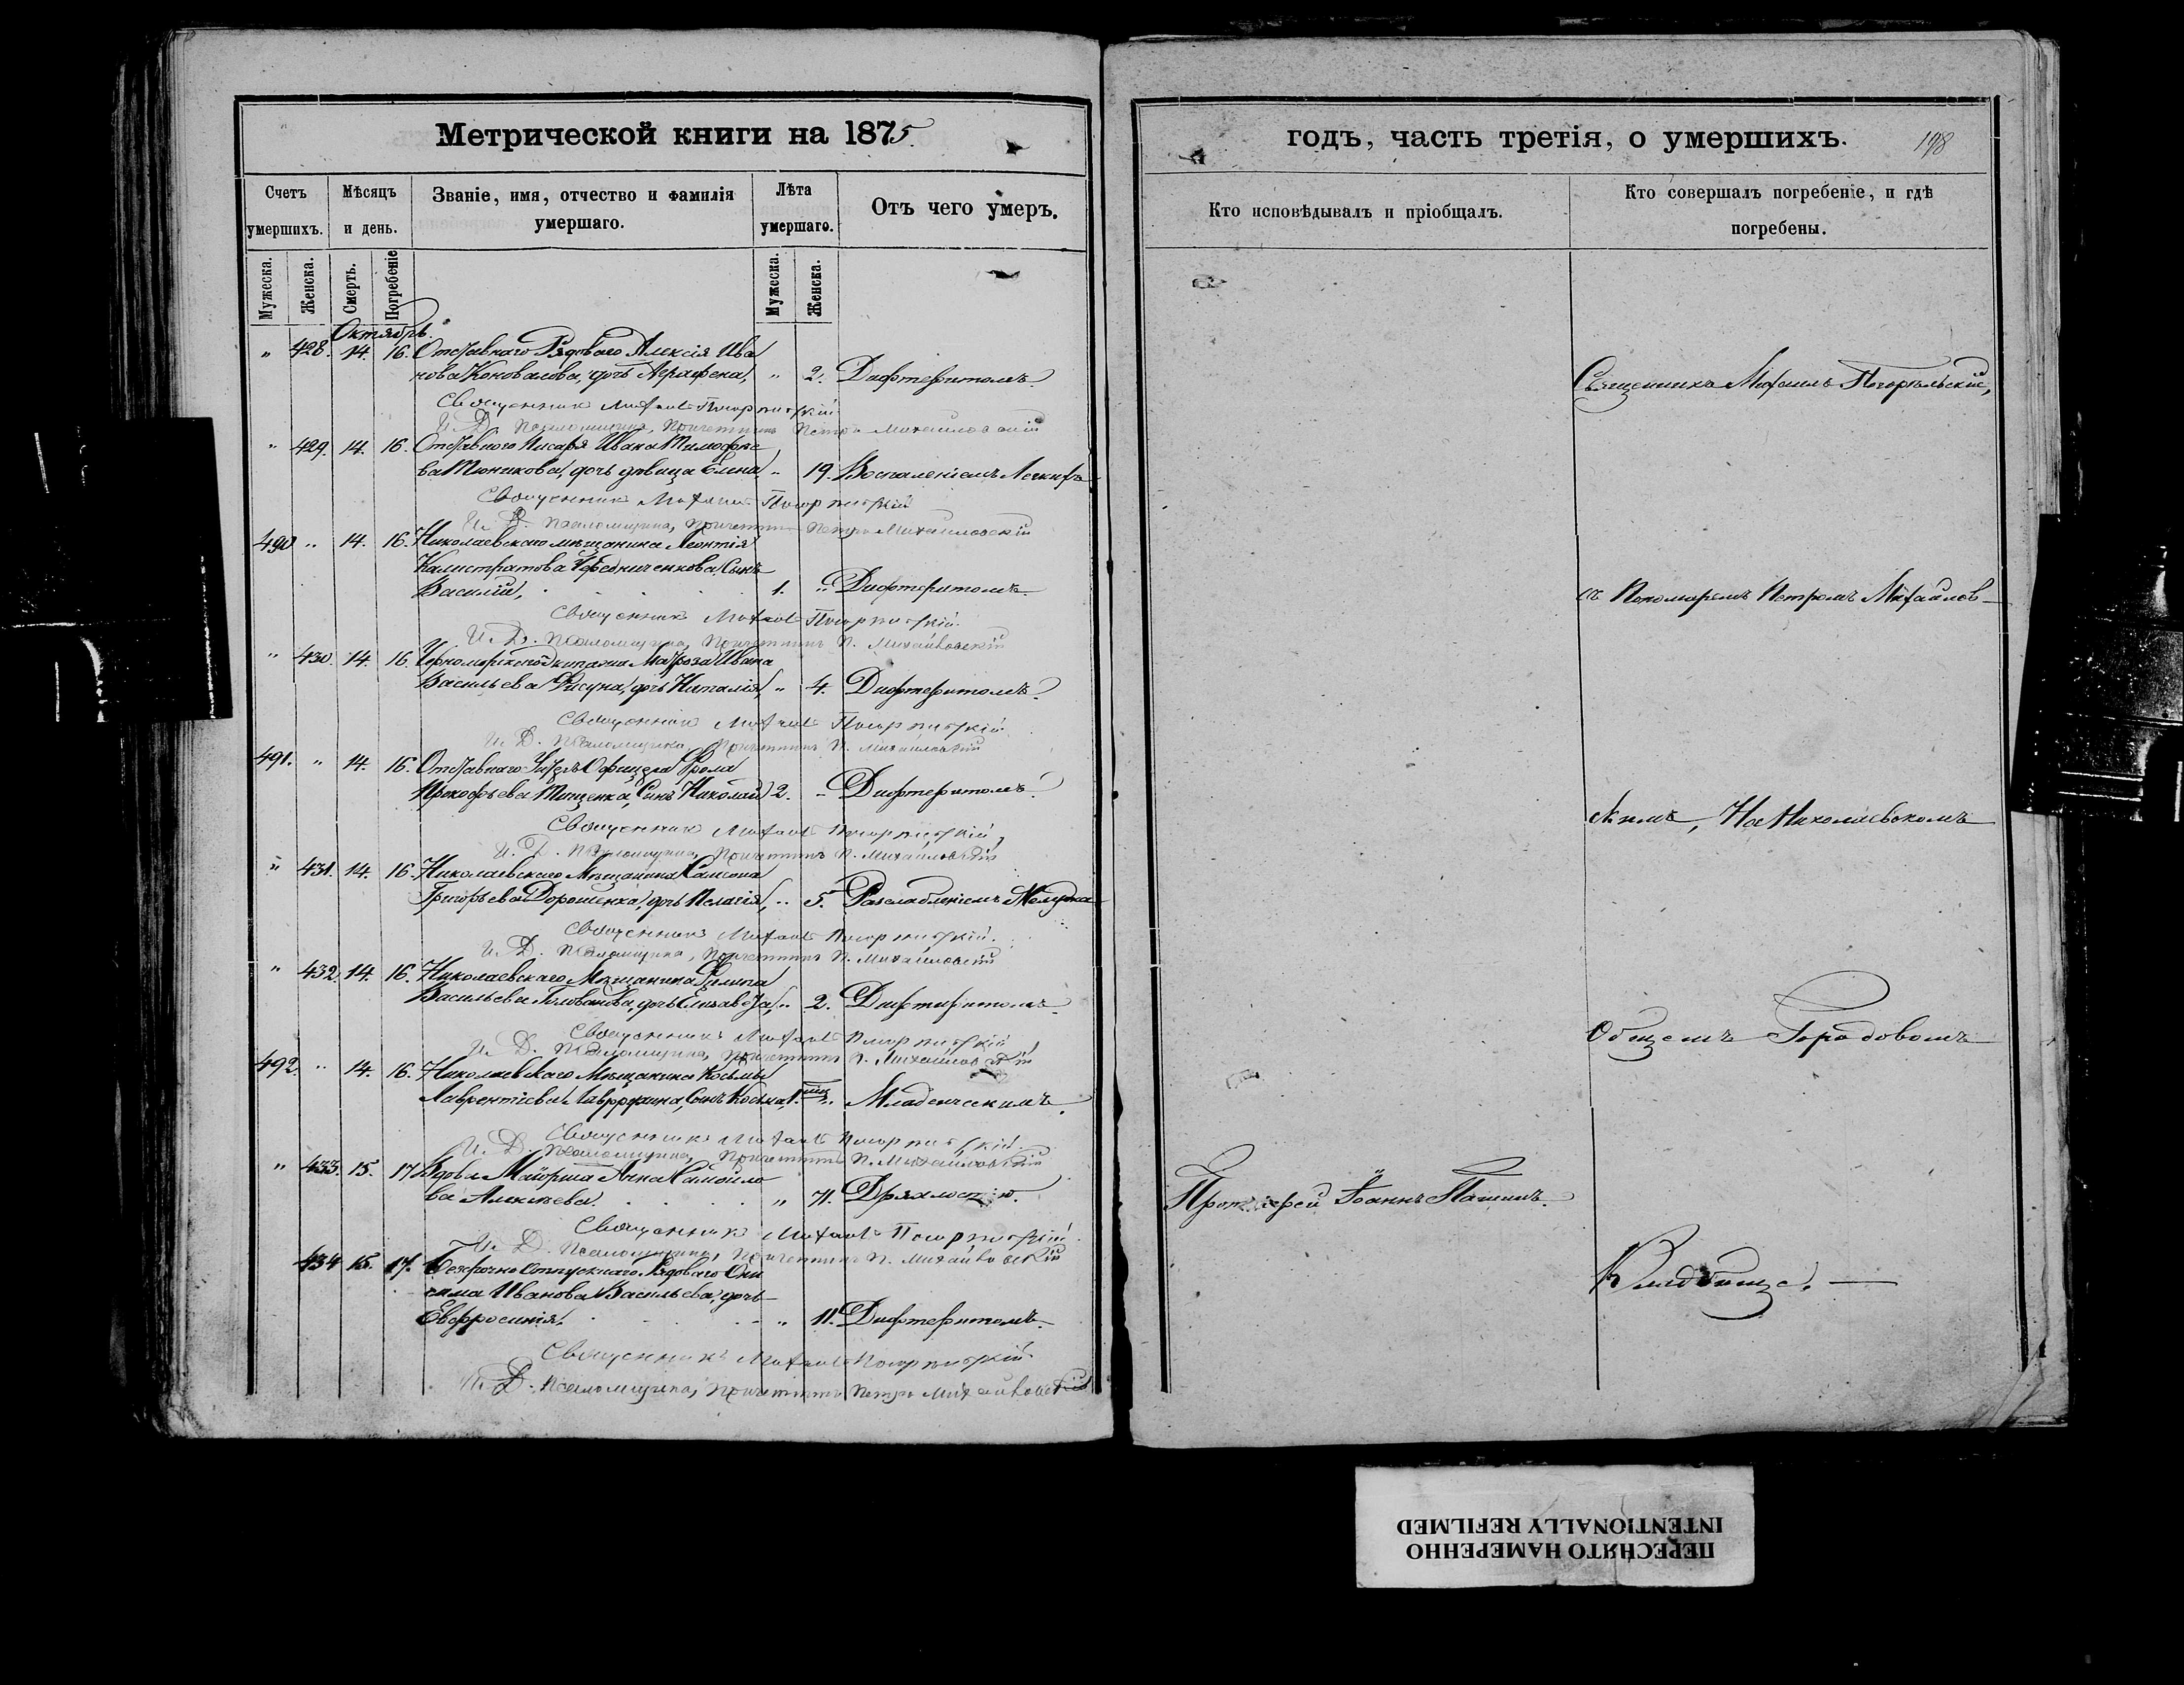 Метрической книги на 1875.
Счетъ умершихъ.
Мѣсяцъ и день.
Званіе, имя, отчество и фамилія умершаго.
Лѣта умершаго.
Отъ чего умеръ.
Мужеска. Женска. Смерть. Погребеніе Мужеска. Женска.
Октябрь.
" 428. 14. 16. Отставнаго Рядоваго Алексія Ива
нова Коновалова, дочь Агрипена, " 2. Дифтеритомъ.
Священникъ Михаилъ Погорѣльскій
И. Д. Псаломщика, Причетникъ Петръ Михайловскій
" 429. 14. 16. Отставного Писаря Ивана Тимофѣе
ва дочь дѣвица Елена " 19. Воспаленіемъ Легкихъ
Священникъ Михаилъ Погорѣльскій
И. Д. Псаломщика, Причетникъ Петръ Михайловскій
490 " 14. 16. Николаевскаго мѣщанина Леонтія
Калистратова Сынъ
Василій, 1. " Дифтеритомъ.
Священникъ Михаилъ Погорѣльскій.
И. Д. Псаломщика, Причетникъ П. Михайловскій
" 430. 14. 16. Матроза Ивана
Васильева дочь Наталія, " 4. Дифтеритомъ.
Священникъ Михаилъ Погорѣльскій.
И. Д. Псаломщика, Причетникъ П. Михайловскій
491. " 14. 16. Отставнаго Унтеръ Офицера Фрола
Прокофьева Сынъ Николай 2. " Дифтеритомъ.
Священникъ Михаилъ Погорѣльскій,
И. Д. Псаломщика, Причетникъ П. Михайловскій
" 431. 14. 16. Николаевскаго Мѣщанина Самсона
Григорьева Дорошенка, дочь Пелагія, " 5. Разслабленіемъ Желудка
Священникъ Михаилъ Погорѣльскій.
И. Д. Псаломщика, Причетникъ П. Михайловскій
" 432. 14. 16. Николаевскаго Мѣщанина Филипа
Васильева Голованова, дочь Елизавета, " 2. Дифтиритомъ.
Священникъ Михаилъ Погорѣльскій
И. Д. Псаломщика, Причетникъ П. Михайловскій
492. " 14. 16. Николаевскаго Мѣщанина Косьмы
Лаврентіева Сынъ Косьма, " Младенческимъ.
Священникъ Михаилъ Погорѣльскій.
И. Д. Псаломщика, Причетникъ П. Михайловскій
" 433. 15. 17 Вдова Маіорша Анна Самойло
ва Алексѣева. " 71. Дряхлостію.
Священникъ Михаилъ Погорѣльскій.
И. Д. Псаломщика, Причетникъ П. Михайловскій
434 15. 17. Безсрочно отпускнаго Рядоваго Они
сима Иванова Васильева, дочь
Евфросинія, " 11. Дифтеритомъ.
Священникъ Михаилъ Погорѣльскій.
И. Д. Псаломщика, Причетникъ Петръ Михайловскій
годъ, часть третія, о умершихъ.
198
Кто исповѣдывалъ и пріобщалъ.
Кто совершалъ погребеніе, и гдѣ
погребены.
Священникъ Михаилъ Погорѣльскій,
съ Пономаремъ Петромъ Михайлов-
скимъ, На Николаевскомъ
Общемъ Городовомъ
Протоіерей Іоаннъ
Кладбище. —
ПЕРЕСНЯТО НАМЕРЕННО
INTENTIONALLY REFILMED